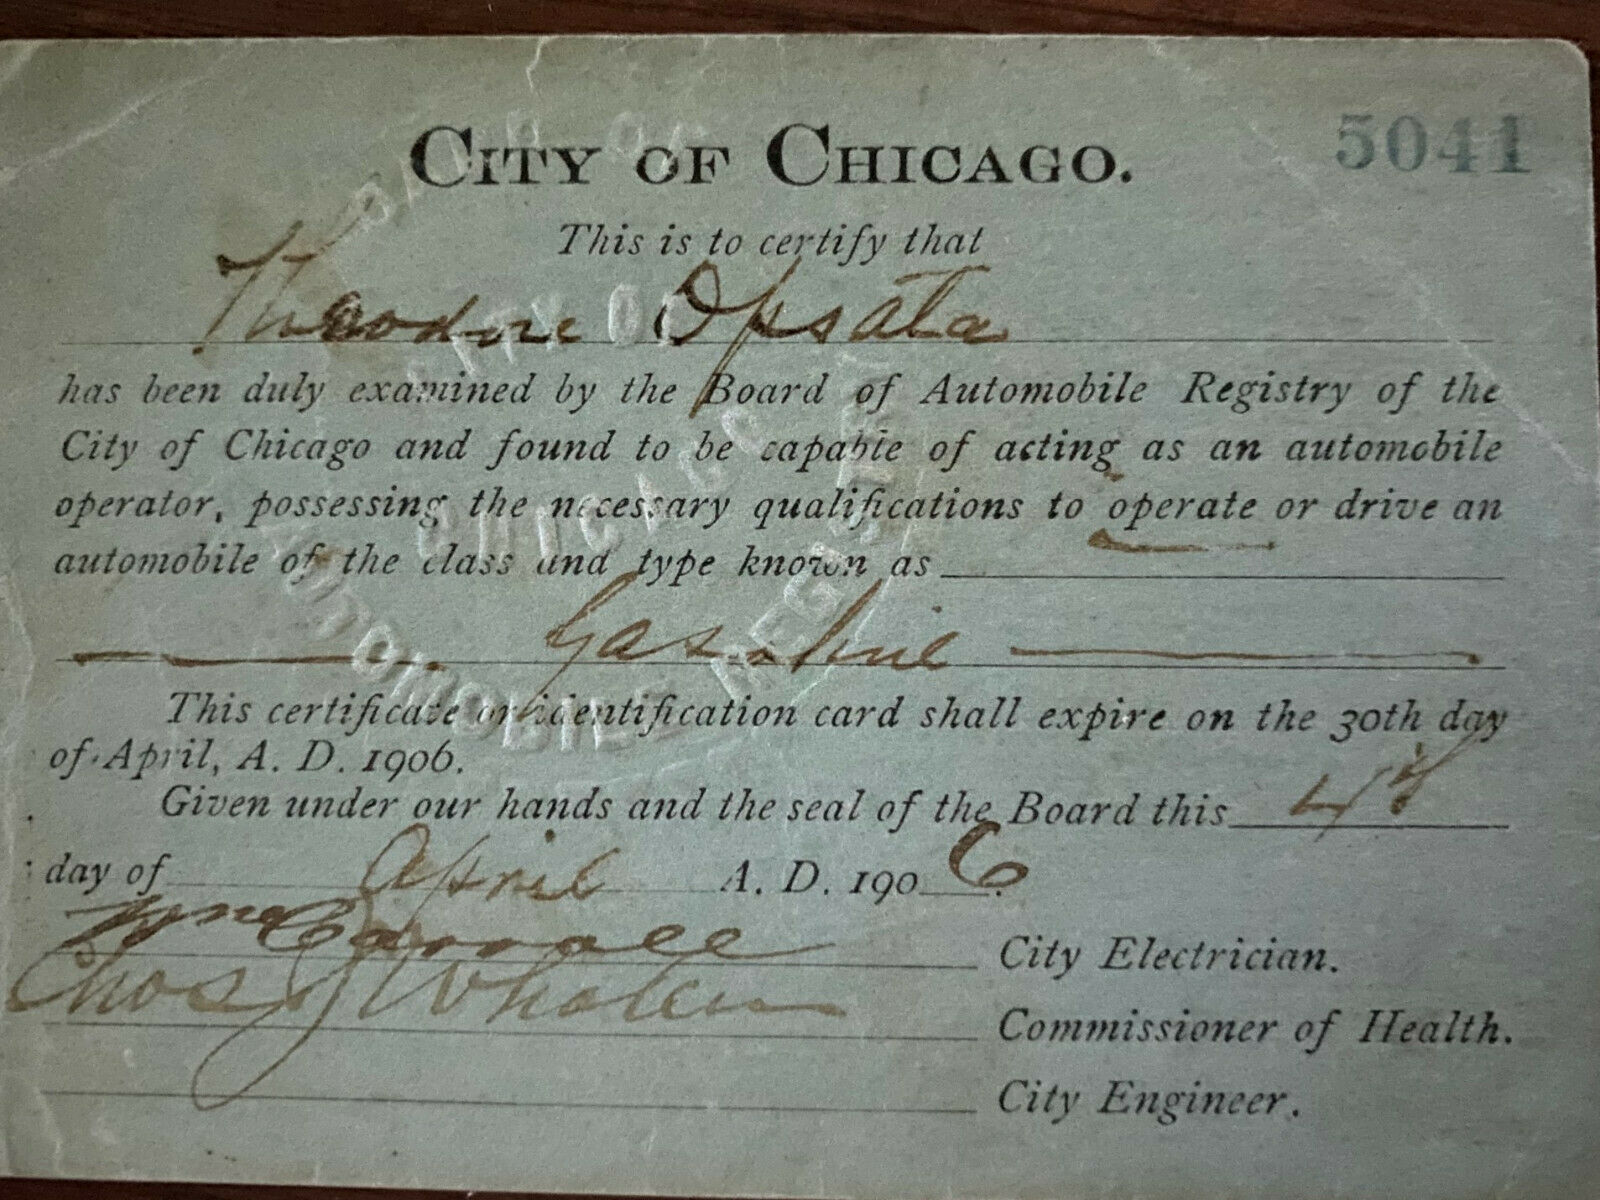 CITY OF CHICAGO.
5041
This is to certify that
Theodore Opsata
has been duly examined by the Board of Automobile Registry of the
City of Chicago and found to be capable of acting as an automobile
operator, possessing the necessary qualifications to operate or drive an
automobile of the class and type known as
Gasoline
This certificate or identification card shall expire on the 30th day
of April, A. D. 1906.
Given under our hands and the seal of the Board this 4th
day of April A. D. 1906.
Wm Carroll City Electrician.
Chas J Whalen Commissioner of Health.
City Engineer.
CITY OF
CHICAGO
AUTOMOBILE REGISTRY